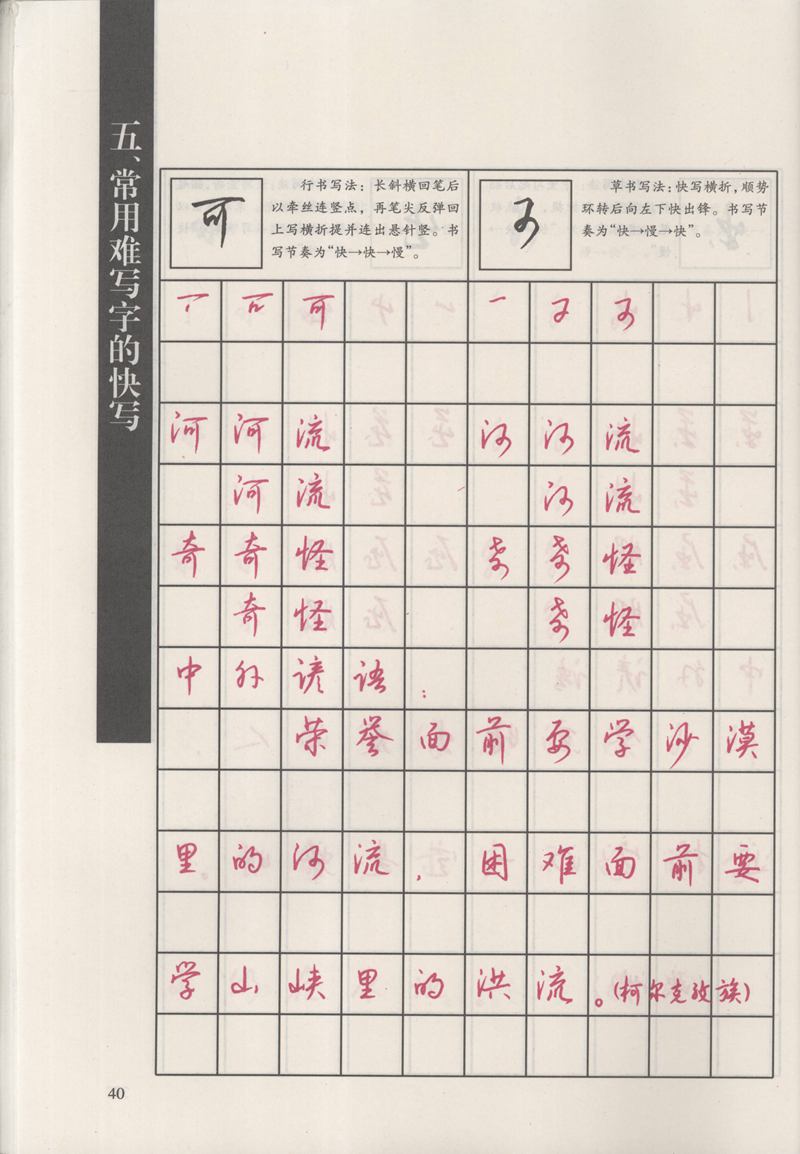 五、常用难写字的快写
可
行书写法：长斜横回笔后
以牵丝连竖点，再笔尖反弹回
上写横折提并连出悬针竖。书
写节奏为“快→快→慢”。
可
草书写法：快写横折，顺势
环转后向左下快出锋。书写节
奏为“快→慢→快”。
可 一 可
河 河 流 河 河 流
河 流 河 流
奇 奇 怪 奇 奇 怪
奇 怪 奇 怪
中 外 谚 语 ：
荣 誉 面 前 要 学 沙 漠
里 的 河 流 ， 困 难 面 前 要
学 山 峡 里 的 洪 流 。（柯尔克孜族）
40